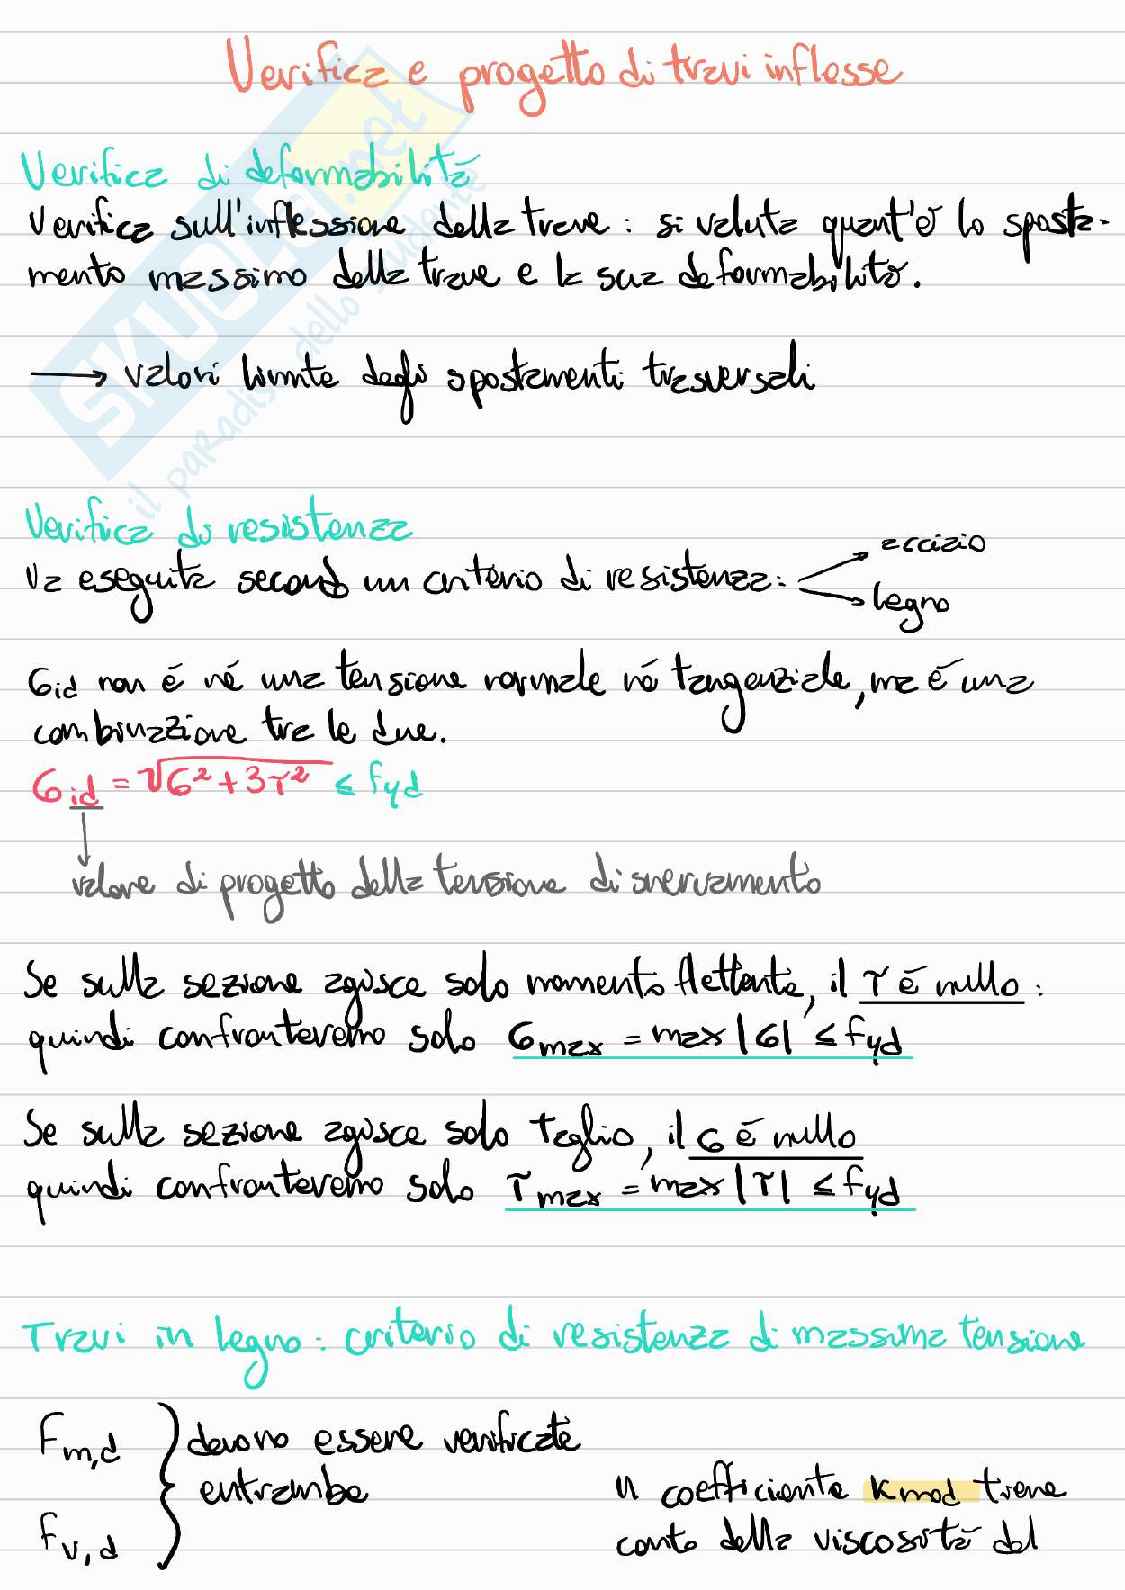 Verifica e progetto di travi inflesse
Verifica di deformabilità
Verifica sull'inflessione della trave : si valuta quant'è lo sposta-
mento massimo della trave e la sua deformabilità.
→ valori limite degli spostamenti trasversali
Verifica di resistenza
Va eseguita secondo un criterio di resistenza:
acciaio
legno
σid non é né una tensione normale né tangenziale, ma é una
combinazione tra le due.
σid = √σ²+3τ² ≤ fyd
valore di progetto della tensione di snervamento
Se sulla sezione agisce solo momento flettente, il τ é nullo :
quindi confronteremo solo σmax = max |σ| ≤ fyd
Se sulla sezione agisce solo taglio, il σ é nullo
quindi confronteremo solo τmax = max |τ| ≤ fyd
Travi in legno : criterio di resistenza di massima tensione
fm,d } devono essere verificate
entrambe
fv,d
Il coefficiente kmod tiene
conto della viscosità del
SKUOLA.net
il paradiso dello studente